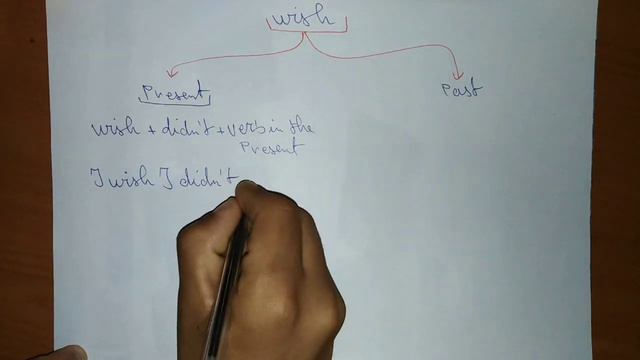 wish
Present
Past
wish + didn't + verb in the
Present
I wish I didn't